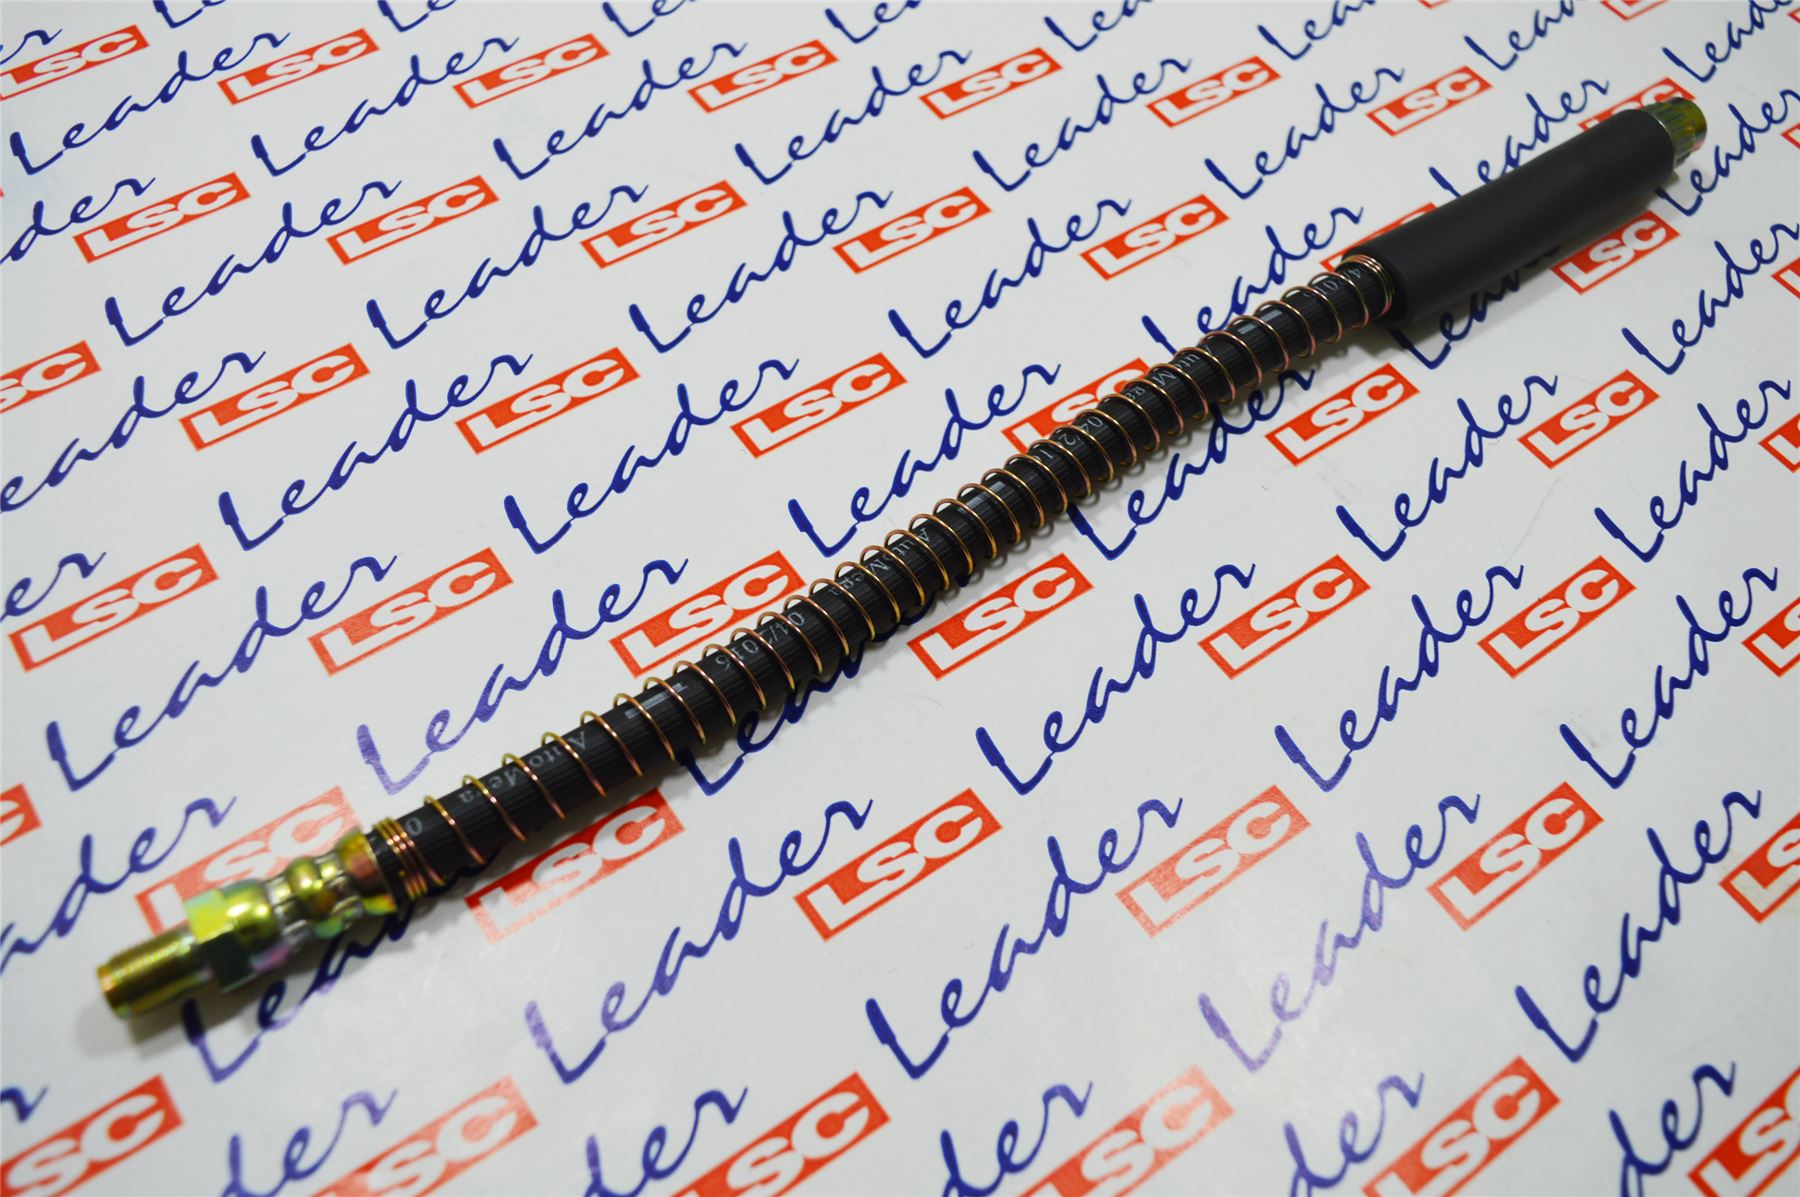 LSC Leader LSC Leader LSC Leader LSC Leader LSC Leader
Leader LSC Leader LSC Leader LSC Leader LSC Leader LSC Leader
Leader LSC Leader LSC Leader LSC Leader LSC Leader
LSC Leader LSC Leader LSC Leader LSC Leader LSC Leader
LSC Leader LSC Leader LSC Leader LSC Leader
Leader LSC Leader LSC Leader LSC Leader
LSC Leader LSC Leader LSC Leader LSC
AutoMega
04/2016
AutoMega